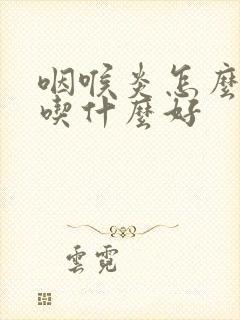 咽喉炎怎麼
喫什麼好
雲霓